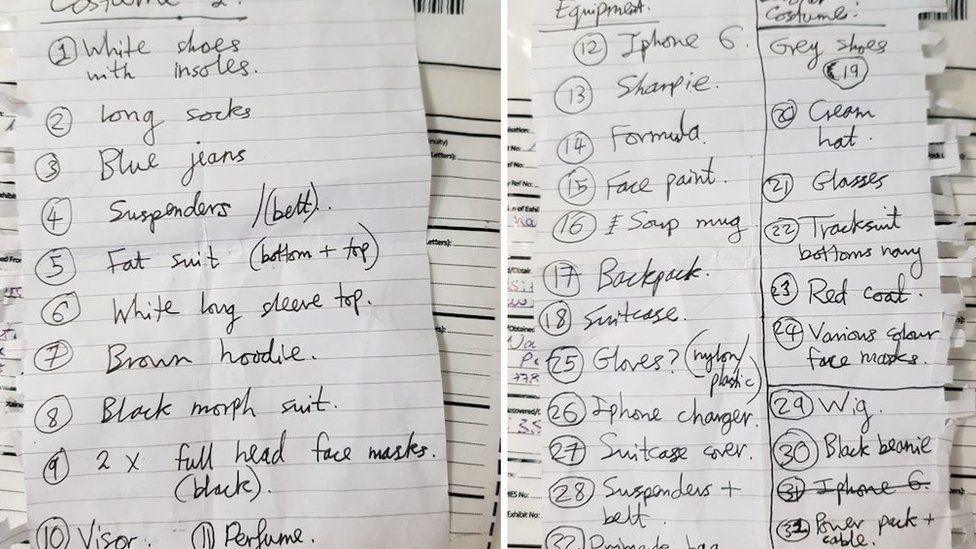 Costume 2.
① White shoes
with insoles.
② Long socks
③ Blue jeans
④ Suspenders /(belt).
⑤ Fat suit (bottom + top)
⑥ White long sleeve top.
⑦ Brown hoodie.
⑧ Black morph suit.
⑨ 2 x full head face masks.
(black).
⑩ Visor. ⑪ Perfume.
Equipment.
⑫ Iphone 6.
⑬ Sharpie.
⑭ Formula.
⑮ Face paint.
⑯ Soup mug
⑰ Backpack.
⑱ Suitcase.
㉕ Gloves? (nylon/
plastic)
㉖ Iphone charger.
㉗ Suitcase cover.
㉘ Suspenders +
belt.
㉜
bag
Costume:
Grey shoes
⑲
⑳ Cream
hat.
㉑ Glasses
㉒ Tracksuit
bottoms navy
㉓ Red coat.
㉔ Various colour
face masks.
㉙ Wig.
㉚ Black beanie
㉛ Iphone 6.
Power pack +
cable.
Letters):
Letters):
Exhibit No: